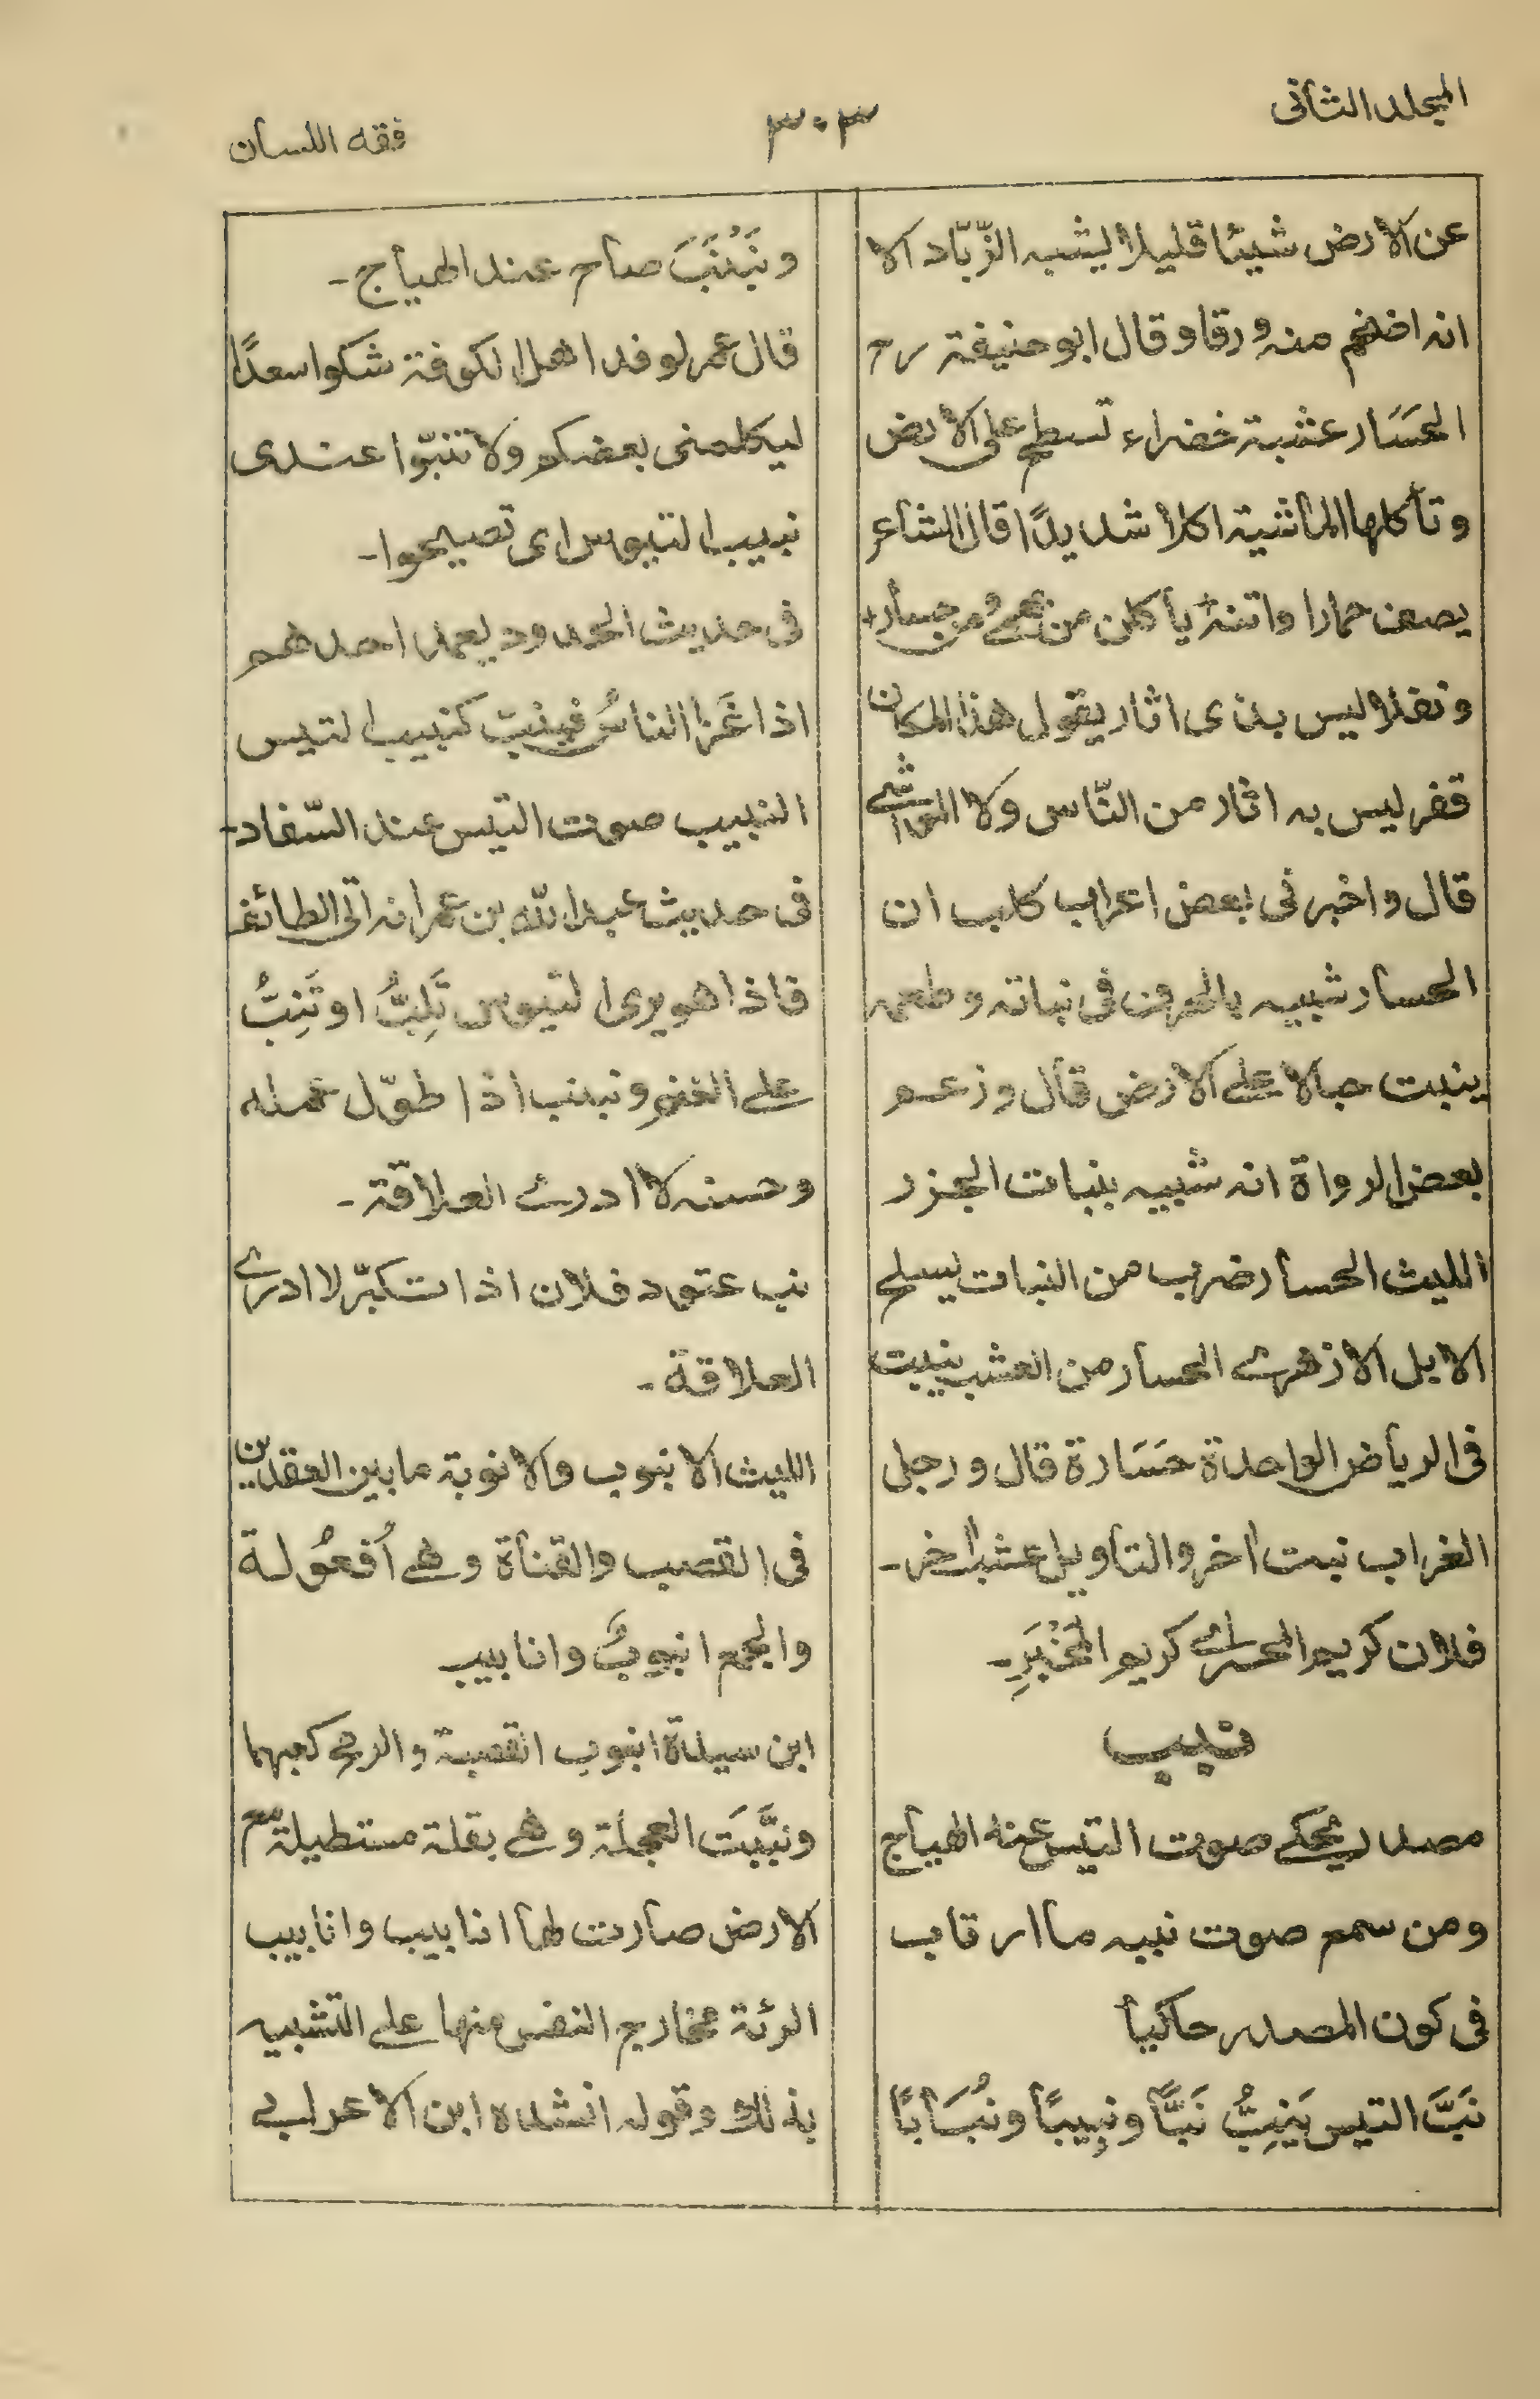 المجلد الثانی
۳۰۳
فقه اللسان
عن الارض شیئا قلیلا یشبه الزّبّاد الا
انه اضخم منه ورقا وقال ابو حنیفة رح
الحَسَار عشبة خضراء تسطح علی الارض
وتأکلها الماشیة اکلا شدیدًا قال الشاعر
یصف حمارا واتنه یأکلن من بهمی ومن حسار+
ونفلا لیس بذی اثار یقول هذا المکان
قفر لیس به اثار من النّاس ولا المواشی
قال واخبرنی بعض اعراب کلب ان
الحسار شبیه بالحرف فی نباته وطعمه
ینبت حبالا علی الارض قال وزعم
بعض الرواة انه شبیه بنبات الجزر
اللیث الحسار ضرب من النبات یسلح
الابل الازهری الحسار من العشب ینبت
فی الریاض الواحدة حَسَارة قال ورجل
الغراب نبت اٰخر والتاویل عشب اٰخر۔
فلان کریم المحسر ای کریم المَخْبَرِ۔
نبیب
مصدر یحکی صوت التیس عند الهیاج
ومن سمع صوت نبیه ما ارتاب
فی کون المصدر حاکیا
نَبَّ التیس یَنِبُّ نَبًّا ونبِیبًا ونُبَابًا
ونَبْنَبَ صاح عند الهیاج۔
قال عمر لوفد اهل الکوفة شکوا سعدًا
لیکلمنی بعضکم ولا تنبّوا عندی
نبیب التیوس ای تصیحوا۔
فی حدیث الحدود یعمد احدهم
اذا غَزا الناسُ فینب کنبیب التیس
النبیب صوت التیس عند السّفاد۔
فی حدیث عبد اللّه بن عمر انه اتی الطائف
فاذا هو یری التیوس تَلِبُّ او تَنِبُّ
علی الغنم ونبنب اذا طوّل عمله
وحسنه لا ادری العلاقة۔
نب عتود فلان اذا تکبّر لا ادری
العلاقة۔
اللیث الانبوب والانوبة ما بین العقدتین
فی القصب والقناة وهی اُفعُولة
والجمع انبوبٌ وانابیب
ابن سیدة انبوب القصبة والرمح کعبهما
ونَبَّبَت العجلة وهی بقلة مستطیلة مع
الارض صارت لها انابیب وانابیب
الرئة مخارج النفس منها علی التشبیه
بذلك وقوله انشده ابن الاعرابی